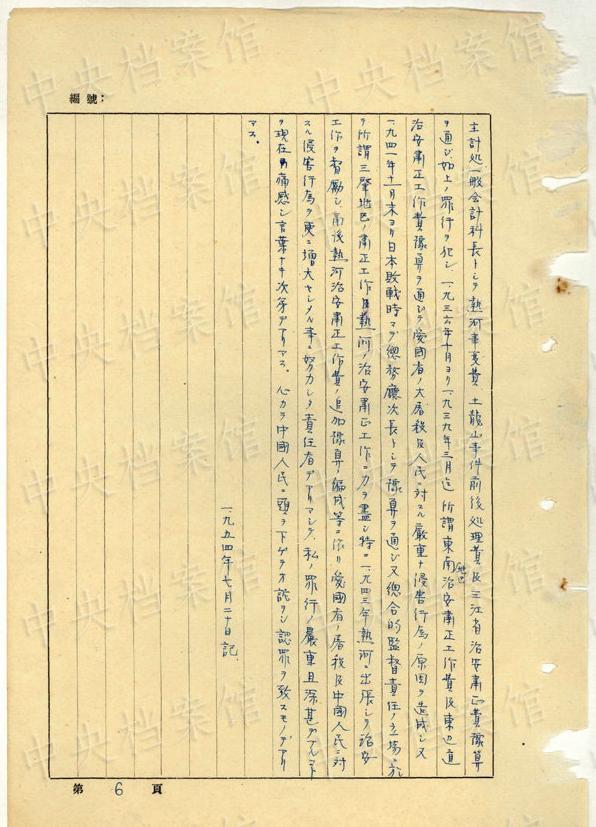 編號：
主計処一般会計科長トシテ熱河事変費、土龍山事件前後処理費及三江省治安粛正費豫算
ヲ通ジ如上ノ罪行ヲ犯シ、一九三六年十月ヨリ一九三九年三月迄所謂東南地区治安粛正工作費及東辺道
治安粛正工作費豫算ヲ通ジテ愛國者ノ大屠殺及人民ニ対スル厳重ナ侵害行為ノ原因ヲ造成シ又
一九四一年十一月末ヨリ日本敗戦時マデ總務廳次長トシテ豫算ヲ通ジ又総合的監督責任ノ立場ニ於
テ所謂三肇地区ノ粛正工作及熱河ノ治安粛正工作ニ力ヲ盡シ特ニ一九四三年熱河ニ出張シテ治安
工作ヲ督励シ爾後熱河治安粛正工作費ノ追加豫算ノ編成等ニ依リ愛國者ノ屠殺及中國人民ニ対
スル侵害行為ヲ更ニ増大セシメル事ニ努力シタ責任者デアリマシテ、私ノ罪行ノ厳重且深甚デアルコト
ヲ現在痛感シ言葉ナキ次第デアリマス。心カラ中國人民ニ頭ヲ下ゲテオ詫ヲシ認罪ヲ致スモノデアリ
マス。
一九五四年七月二十日記
第 6 頁
中央档案馆